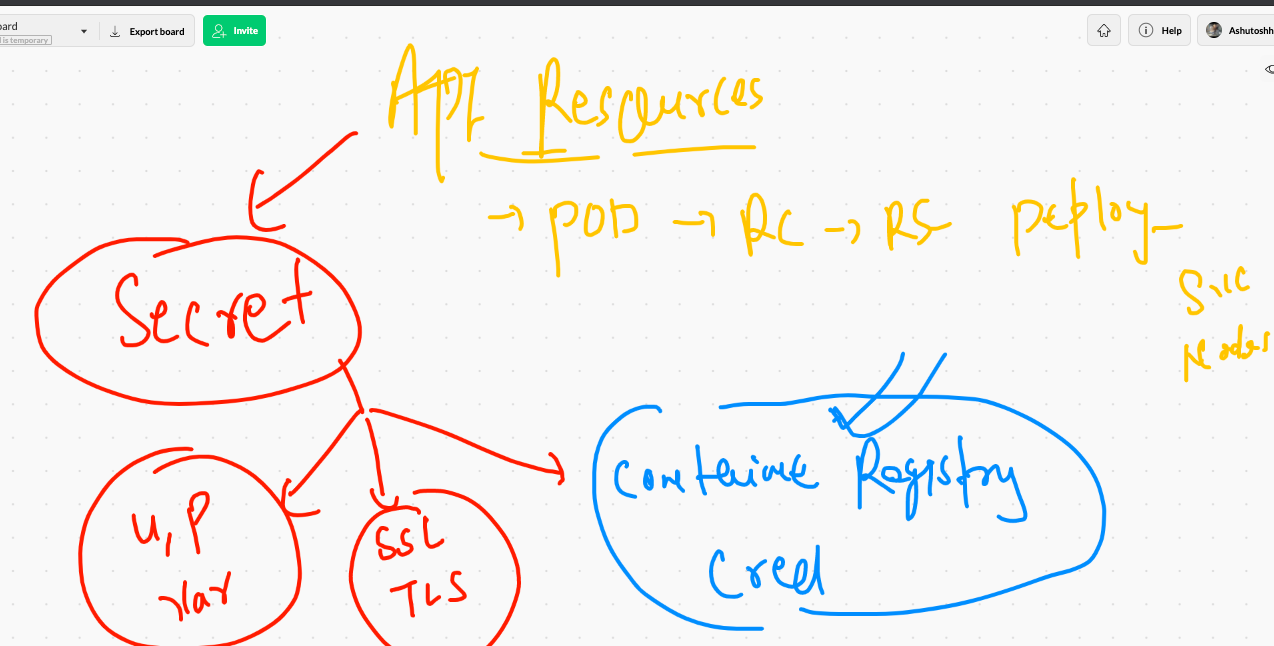 oard
d is temporary
Export board
Invite
Help
Ashutoshh
API Resources
→ POD → RC → RS Deploy
Nodes
Secret
U, P
SSL
TLS
Registry
Cred